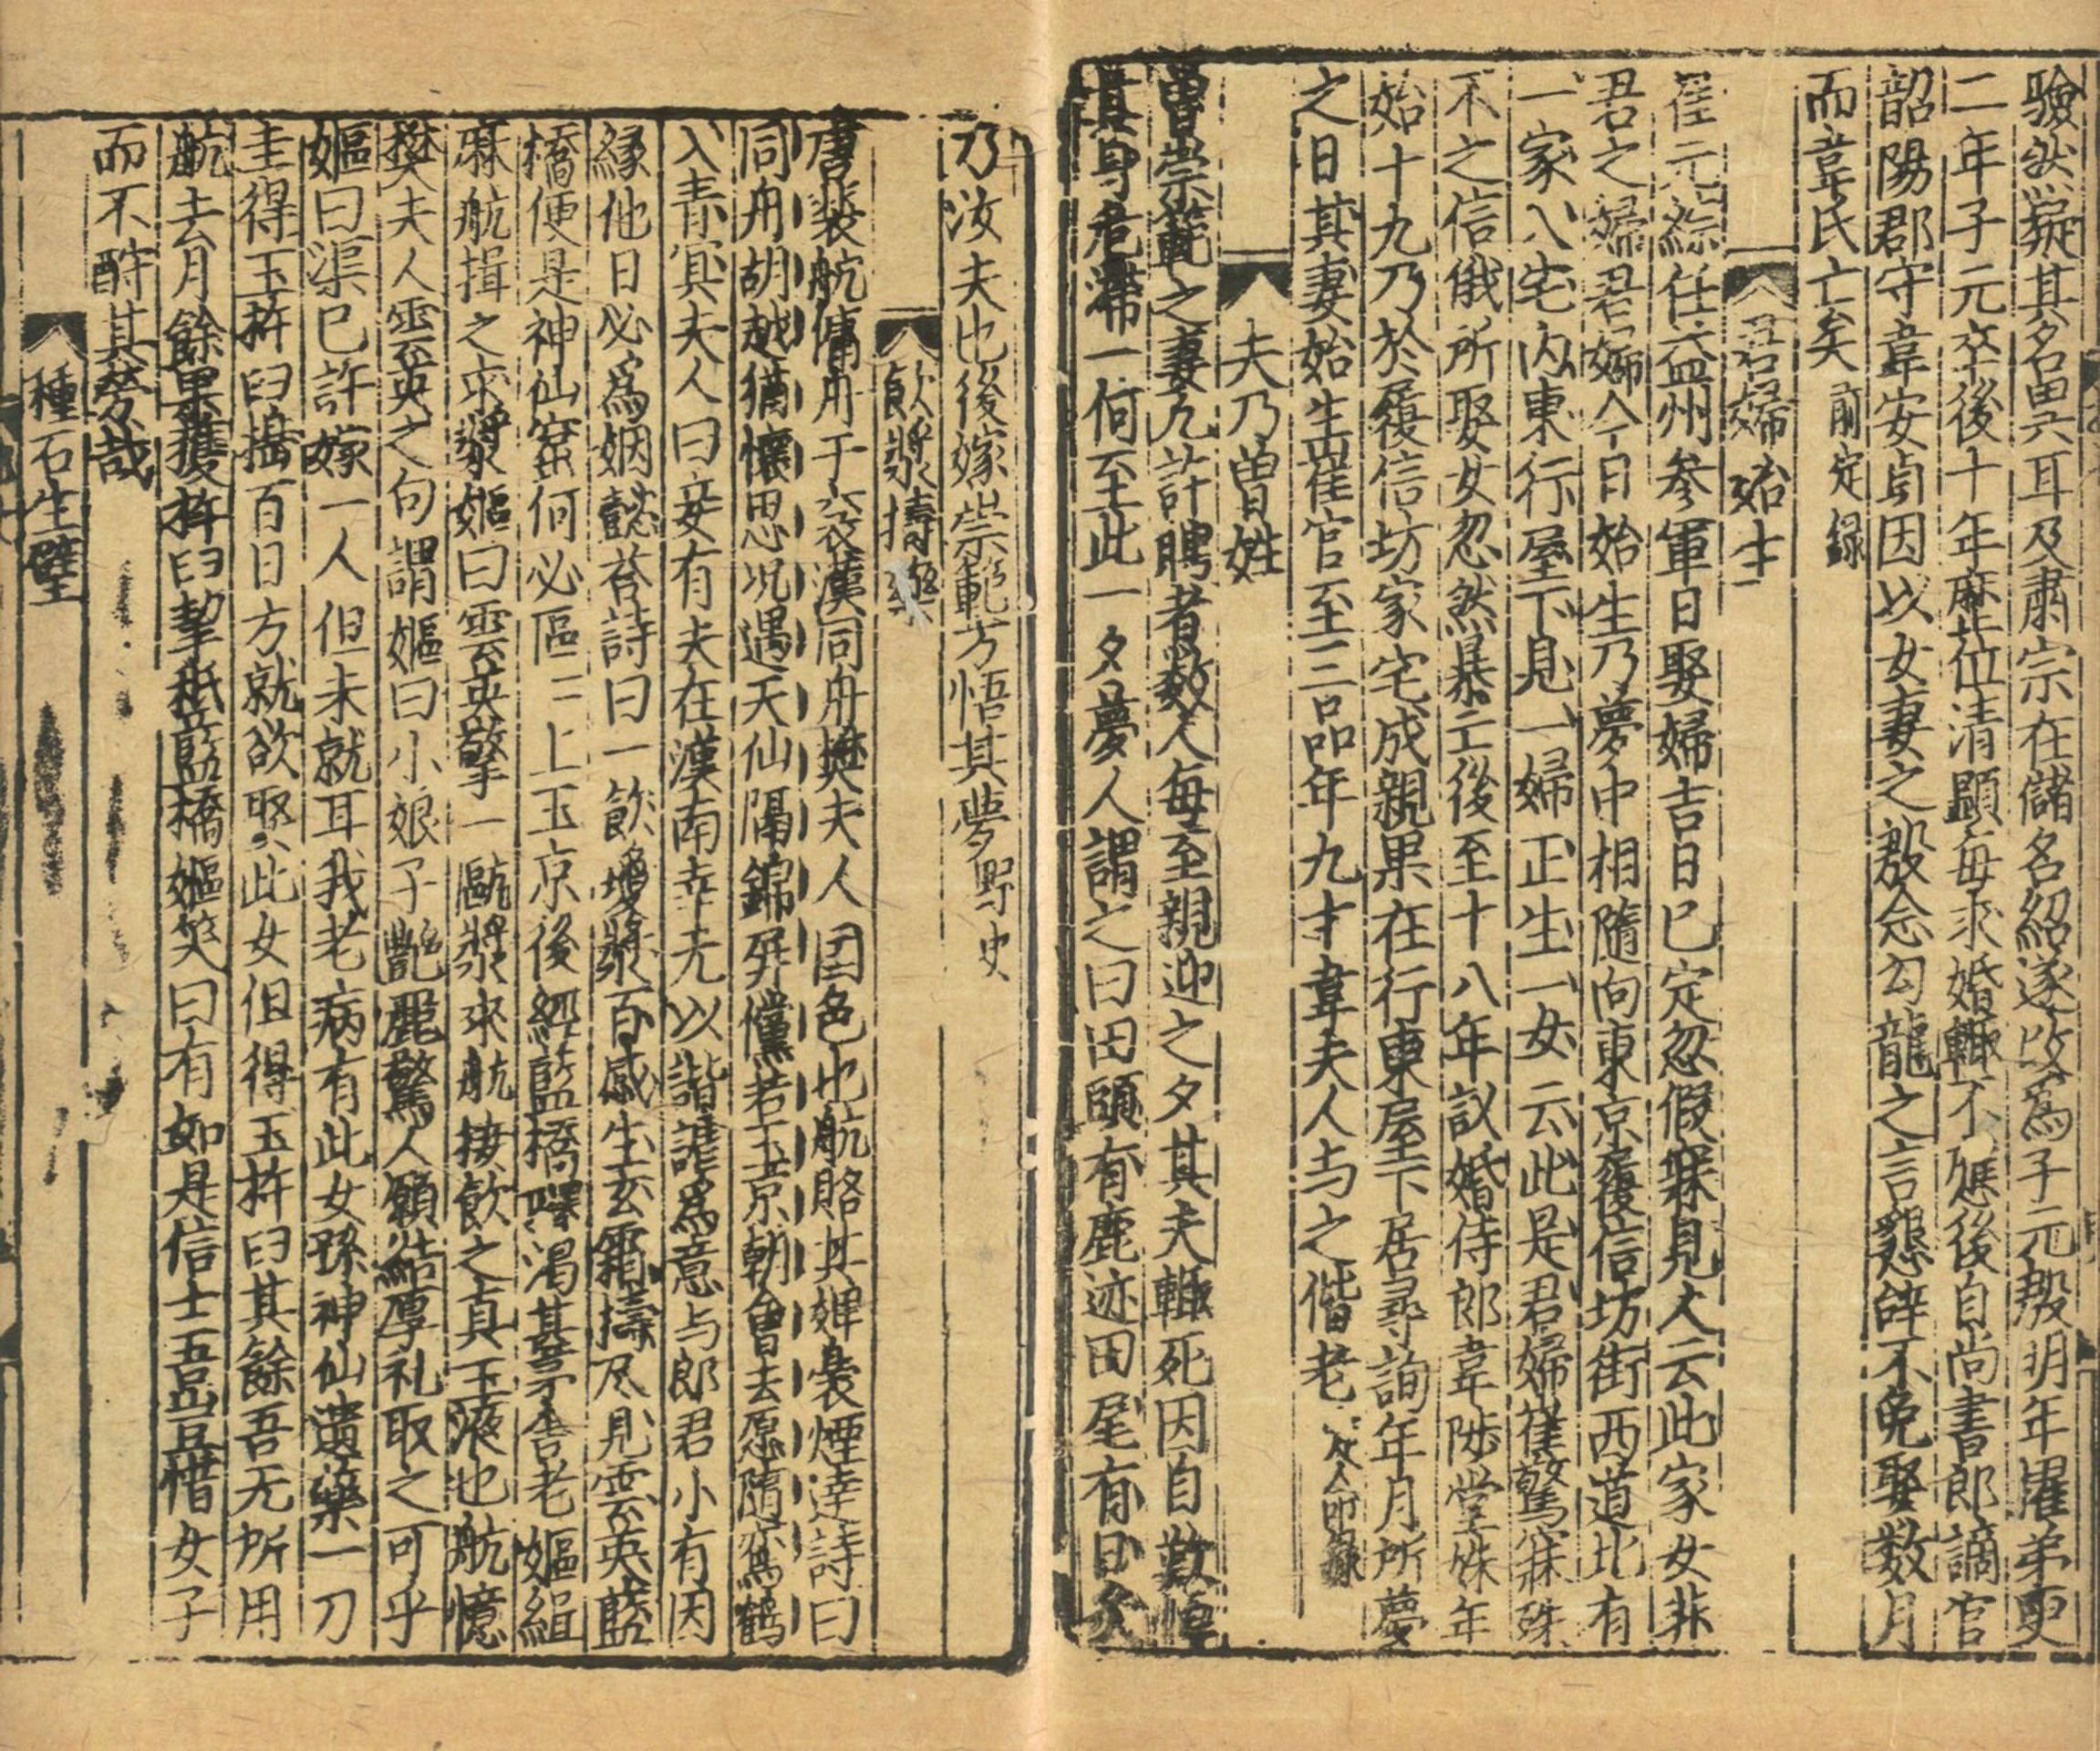 驗然疑其名畧耳及肅宗在儲名紹遂改爲子元殷明年擢弟更
二年子元卒後十年歷位清顯每求婚輙不應後自尚書郎謫官
韶陽郡守韋安貞因以女妻之殷念勾龍之言懇辭不免娶数月
而韋氏亡矣 前定録
君婦始生
崔元綜任益州参軍日娶婦吉日已定忽假寐見人云此家女非
君之婦君婦今日始生乃夢中相隨向東京履信坊街西道北有
一家入宅内東行屋下見一婦正生一女云此是君婦崔驚寐殊
不之信俄所娶女忽然暴亡後至十八年議婚侍郎韋陟堂姝年
始十九乃於履信坊家宅成親果在行東屋下居尋詢年月所夢
之日其妻始生崔官至三品年九十韋夫人与之偕老
夫乃曾姓
曽崇範之妻凢計聘者数人每至親迎之夕其夫輙死因自歎恨
其身危滯一何至此一夕夢人謂之曰田頭有鹿迹田尾有日炙
乃汝夫也後嫁崇範方悟其夢 野史
飲漿擣藥
唐裴航傭舟于襄漢同舟樊夫人国色也航賂其婢裊煙達詩曰
同舟胡越猶懷思况遇天仙隔錦屏儻若玉京朝會去愿隨鸞鶴
入青冥夫人曰妾有夫在漢南幸无以諧謔爲意与郎君小有因
縁他日必爲姻懿荅詩曰一飲瓊漿百感生玄霜擣尽見雲英藍
橋便是神仙窟何必區二上玉京後經藍橋驛渴甚茅舎老嫗緝
麻航揖之求漿嫗曰雲英擎一甌漿來航接飲之真玉液也航憶
樊夫人雲英之句謂嫗曰小娘子艶麗驚人願結厚礼取之可乎
嫗曰渠已許嫁一人但未就耳我老病有此女孫神仙遺藥一刀
圭得玉杵臼擣百日方就欲娶此女但得玉杵臼其餘吾无所用
航去月餘果獲杵臼挈抵藍橋嫗笑曰有如是信士吾豈惜女子
而不酧其勞哉
種石生璧